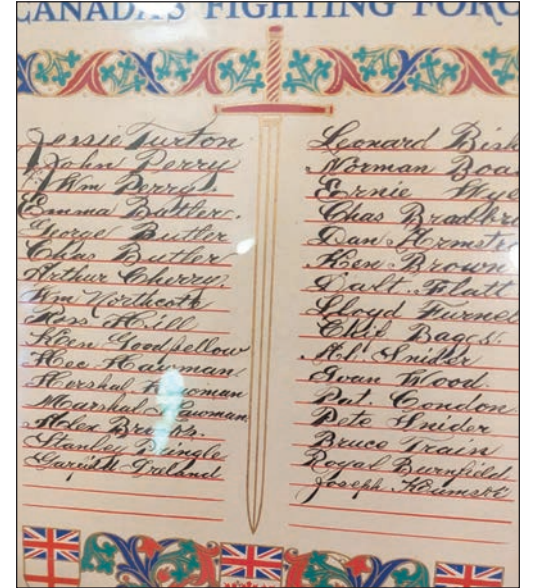 CANADA'S FIGHTING FORC
Jessie Turton
John Perry
Wm Perry.
Emma Butler.
George Butler
Chas Butler
Arthur Cherry.
Wm Northcott
Russ Hill
Ken Goodfellow
Hec Hawman
Hershal
Marshal Hawman.
Alex
Stanley Pringle
Ireland
Leonard Bish
Norman Boa
Ernie Wye
Chas Bradbr
Dan Armstro
Ken Brown
Dalt. Flatt
Lloyd Furnel
Clif Baggs.
Snider
Ivan Wood.
Pat. Condon.
Pete Snider
Bruce Train
Royal Burnfield.
Joseph